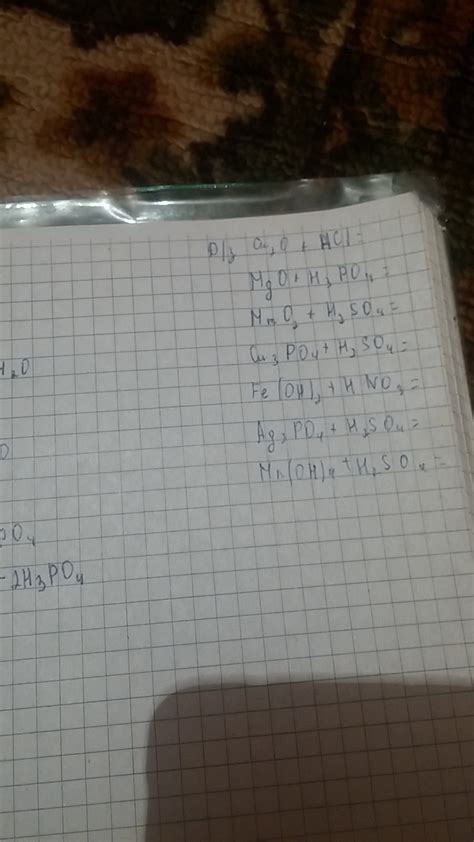 D/з Cu₂O + HCl =
MgO + H₃PO₄ =
MnO₂ + H₂SO₄ =
Cu₃PO₄ + H₂SO₄ =
H₂O
Fe(OH)₂ + HNO₃ =
Ag₃PO₄ + H₂SO₄ =
O
Mn(OH)₄ + H₂SO₄ =
PO₄
- 2H₃PO₄